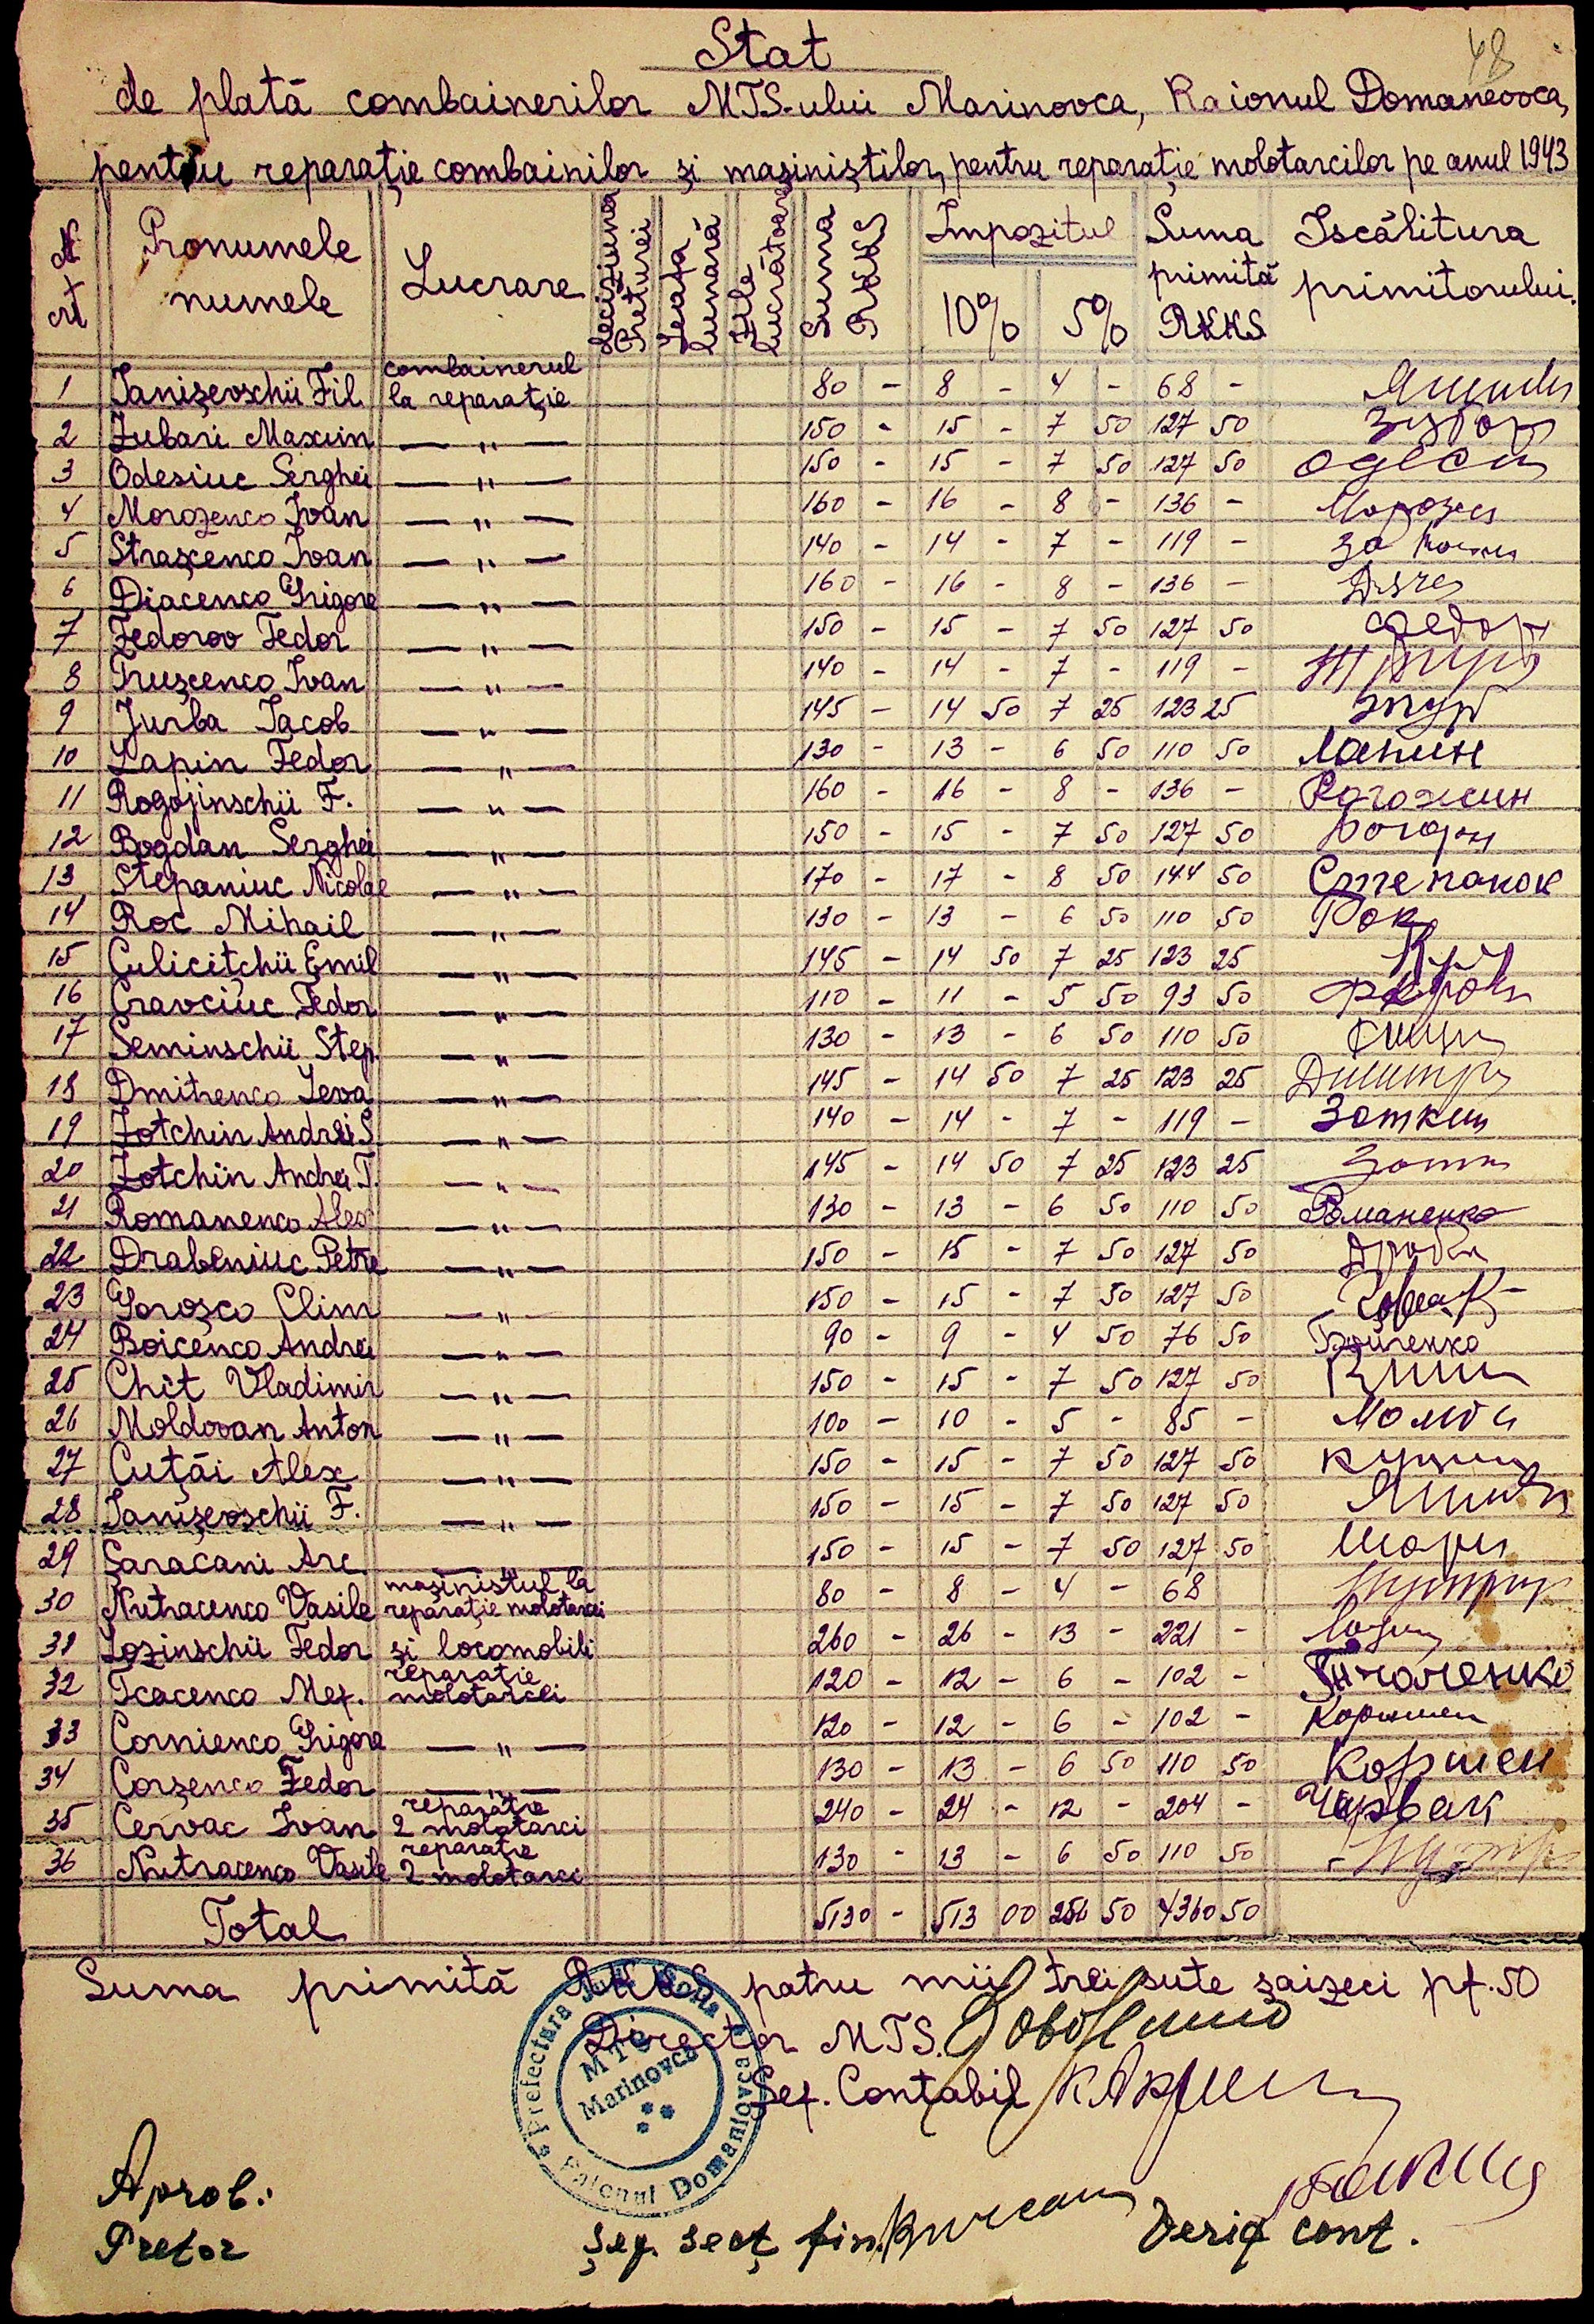 48
Stat
de plată combainerilor MTS-ului Marinovca, Raionul Domaneovca,
pentru reparaţie combainilor şi maşiniştilor, pentru reparaţie molotarcilor pe anul 1943
N crt Pronumele numele Lucrare Deciziuna Preturei Leafa Lunară Zile Lucrătoare Suma RKKS Impozitul 10% 5% Suma primită RKKS Iscălitura primitorului.
1 Ianişevschii Fil. combainerul la reparaţie 80 - 8 - 4 - 68 -
2 Zubari Maxim — " — 150 - 15 - 7 50 127 50
3 Odesiuc Serghei — " — 150 - 15 - 7 50 127 50 Одеси
4 Morozenco Ivan — " — 160 - 16 - 8 - 136 - Морозен
5 Straşcenco Ivan — " — 140 - 14 - 7 - 119 -
6 Diacenco Grigore — " — 160 - 16 - 8 - 136 -
7 Fedorov Fedor — " — 150 - 15 - 7 50 127 50 Федор
8 Truşcenco Ivan — " — 140 - 14 - 7 - 119 -
9 Jurba Iacob — " — 145 - 14 50 7 25 123 25
10 Lapin Fedor — " — 130 - 13 - 6 50 110 50 Лапин
11 Rogojinschii F. — " — 160 - 16 - 8 - 136 - Рогожин
12 Bogdan Serghei — " — 150 - 15 - 7 50 127 50 Богдан
13 Stepaniuc Nicolae — " — 170 - 17 - 8 50 144 50 Степанюк
14 Roc Mihail — " — 130 - 13 - 6 50 110 50 Рок
15 Culiciţchii Emil — " — 145 - 14 50 7 25 123 25
16 Cravciuc Fedor — " — 110 - 11 - 5 50 93 50
17 Seminschii Step. — " — 130 - 13 - 6 50 110 50
18 Dmitrenco Leva — " — 145 - 14 50 7 25 123 25 Дмитр
19 Zotchin Andrei S. — " — 140 - 14 - 7 - 119 - Зоткин
20 Zotchin Andrei T. — " — 145 - 14 50 7 25 123 25
21 Romanenco Alex — " — 130 - 13 - 6 50 110 50 Романенко
22 Drabeniuc Petre — " — 150 - 15 - 7 50 127 50
23 Goroşco Clim — " — 150 - 15 - 7 50 127 50
24 Boicenco Andrei — " — 90 - 9 - 4 50 76 50 Бойченко
25 Chit Vladimir — " — 150 - 15 - 7 50 127 50
26 Moldovan Anton — " — 100 - 10 - 5 - 85 -
27 Cuţăi Alex — " — 150 - 15 - 7 50 127 50
28 Ianişevschii F. — " — 150 - 15 - 7 50 127 50
29 Şaracani Arc. — " — 150 - 15 - 7 50 127 50
30 Nutracenco Vasile maşinistul la reparaţie molotarei 80 - 8 - 4 - 68
31 Lozinschii Fedor şi locomobili 260 - 26 - 13 - 221 -
32 Tcacenco Mef. reparaţie molotarcei 120 - 12 - 6 - 102 -
33 Cornienco Grigore — " — 120 - 12 - 6 - 102 -
34 Corşenco Fedor — " — 130 - 13 - 6 50 110 50 Коршен
35 Cervac Ivan reparaţie 2 molotarci 240 - 24 - 12 - 204 -
36 Nutracenco Vasile reparaţie 2 molotarci 130 - 13 - 6 50 110 50
Total 5130 - 513 00 256 50 4360 50
Suma primită RKKS patru mii trei sute şaizeci pf. 50
Director MTS.
Şef. Contabil
Prefectura
MTS
Marinovca
Raionul Domaniovca
Aprob.:
Pretor
Şef. secţ fin.
Verif cont.